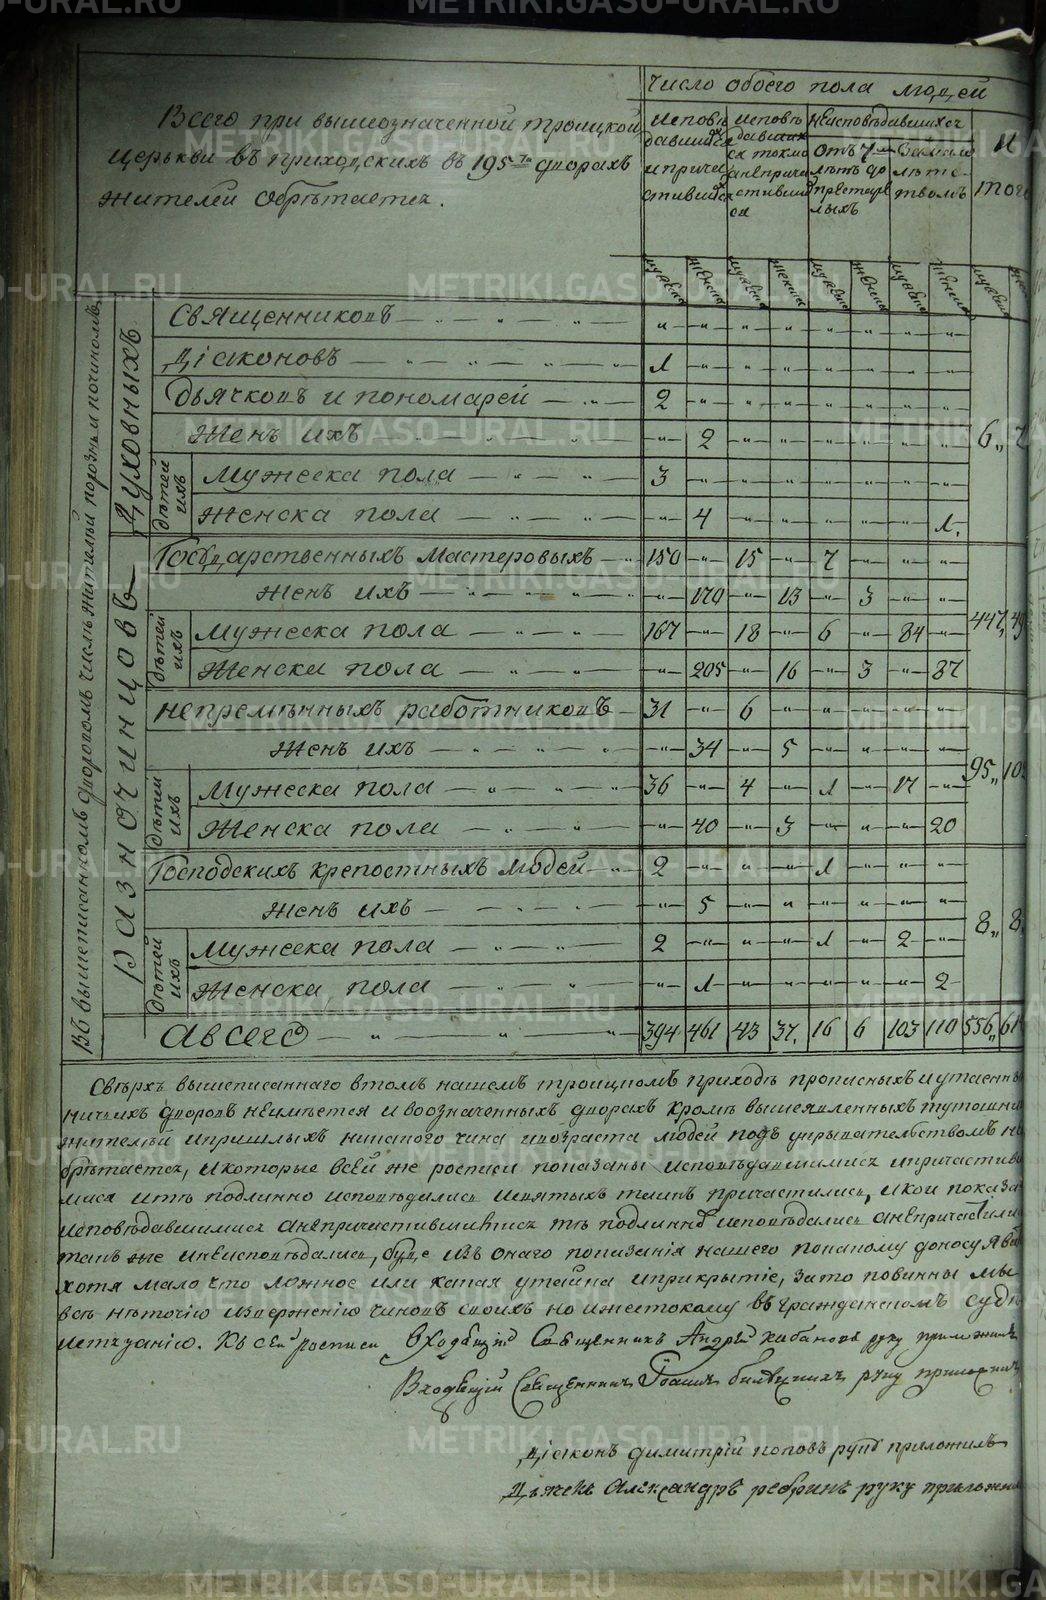 Всего при вышеозначенной троицкой
церькви въ приходскихъ въ 195ти дворахъ
жителей обрѣтается.
Число обоего пола людей
исповѣдавшихся и причастившихся
исповѣдавшихся токмо а непричастившихся
неисповѣдавшихся
отъ 7 лѣтъ до престарелыхъ
за малолѣтствомъ
И
того
мужеска женска мужеска женска мужеска женска мужеска женска мужеска
Въ вышеписанномъ
жителей порознь и по чиномъ
Духовныхъ
Священниковъ
Діаконовъ 1
Дьячковъ и пономарей 2
Женъ ихъ 2 6
дѣтей ихъ
Мужеска пола 3
Женска пола 4 1.
Разночинцовъ
Государственныхъ мастеровыхъ 150 15 7
женъ ихъ 170 13 3
447
дѣтей ихъ
Мужеска пола 167 18 6 84
Женска пола 205 16 3 87
непремѣнныхъ работниковъ 31 6
женъ ихъ 34 5
95
дѣтей ихъ
Мужеска пола 36 4 1 17
Женска пола 40 3 20
Господскихъ крепостныхъ людей 2 1
женъ ихъ 5
8 8
дѣтей ихъ
Мужеска пола 2 1 2
Женска пола 1 2
А всего 394 461 43 37. 16 6 103 110 556
Свѣрхъ вышеписаннаго втомъ нашемъ троицкомъ приходѣ прописныхъ и утаенны
ничьихъ дворовъ неимѣется и воозначенныхъ дворахъ кромѣ вышеявленныхъ тутошни
жителѣй и пришлыхъ никакого чина и возраста людей подъ укрывательствомъ не
брѣтается, и которые всей же росписи показаны исповѣдавшимися и причастивш
мися и тѣ подлинно исповѣдались и святыхъ таинъ причастились, и кои показа
исповѣдавшимися анепричастившимися тѣ подлинно исповѣдались анепричастили
такъ же и неисповѣдались, буде изъ онаго показанія нашего по какому доносу яви
хотя мало что ложное или какая утайка и прикрытіе, зато повинны мы
всѣ нѣточію изверженію чиновъ своихъ но и жестокому въ гражданскомъ судѣ
истязанію. Къ сей росписи Входящій Священникъ Андрей кабановъ руку приложилъ
Входящій Священникъ Іоаннъ руку приложилъ
Діаконъ димитрій поповъ руку приложилъ
Дьячекъ Александръ ребринъ руку приложил
METRIKI.GASO-URAL.RU